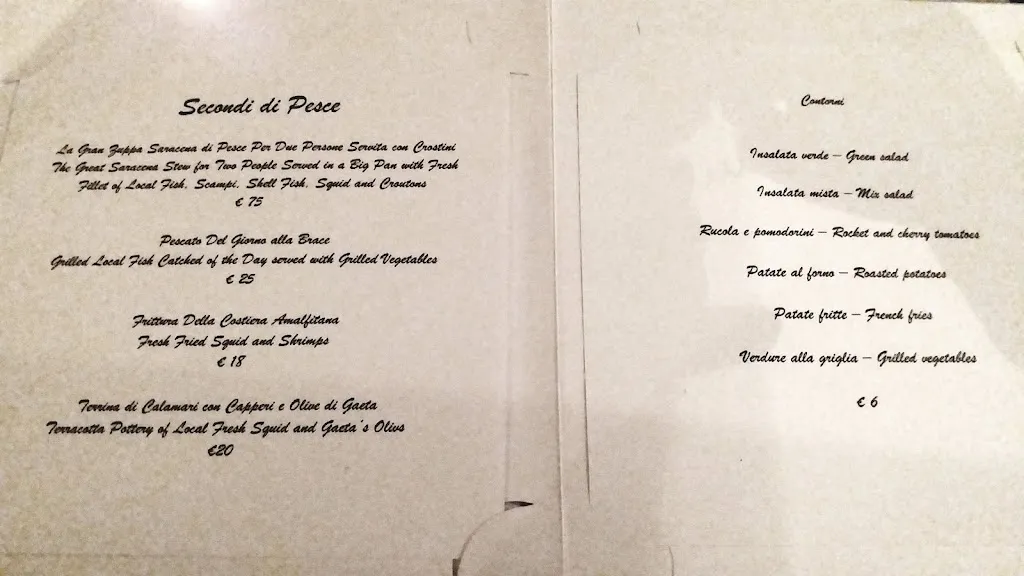 Secondi di Pesce
La Gran Zuppa Saracena di Pesce Per Due Persone Servita con Crostini
The Great Saracena Stew for Two People Served in a Big Pan with Fresh
Fillet of Local Fish, Scampi, Shell Fish, Squid and Croutons
€ 75
Pescato Del Giorno alla Brace
Grilled Local Fish Catched of the Day served with Grilled Vegetables
€ 25
Frittura Della Costiera Amalfitana
Fresh Fried Squid and Shrimps
€ 18
Terrina di Calamari con Capperi e Olive di Gaeta
Terracotta Pottery of Local Fresh Squid and Gaeta's Olivs
€20
Contorni
Insalata verde – Green salad
Insalata mista – Mix salad
Rucola e pomodorini – Rocket and cherry tomatoes
Patate al forno – Roasted potatoes
Patate fritte – French fries
Verdure alla griglia – Grilled vegetables
€ 6